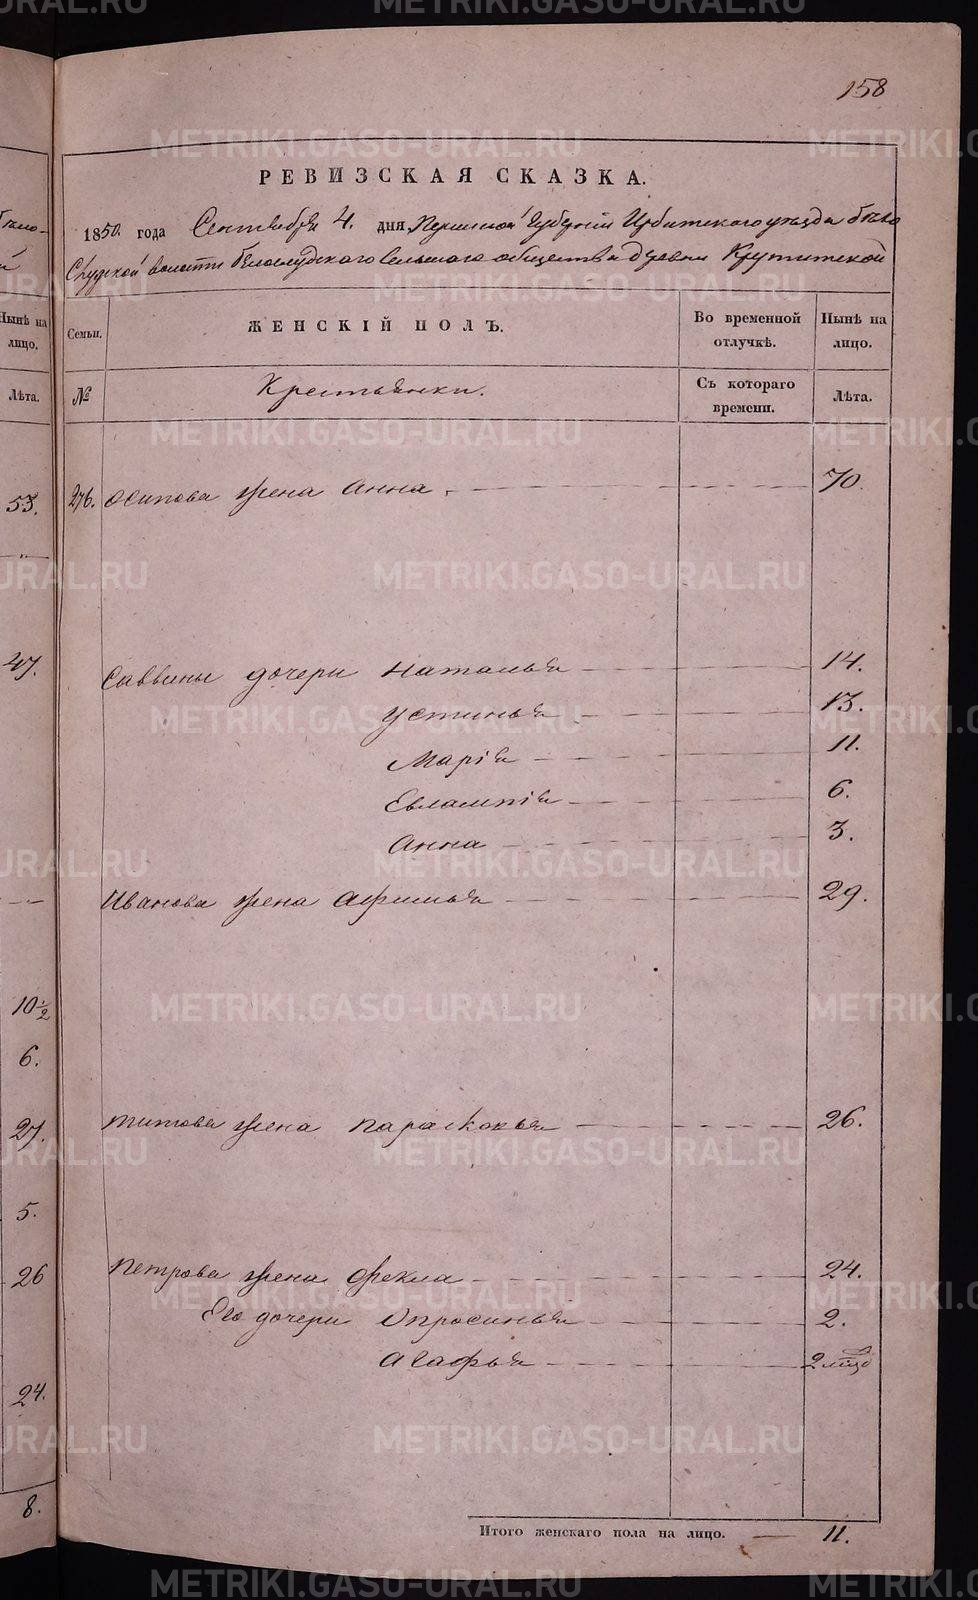 158
РЕВИЗСКАЯ СКАЗКА.
1850 года Сентября 4. дня Пермской Губернии Ирбитского уезда Бело
Слудской волости Белослудского сельского общества деревни Крутитской
Семьи.
ЖЕНСКІЙ ПОЛЪ.
Во временной отлучкѣ.
Нынѣ на лицо.
№
Крестьянки.
Съ котораго времени.
Лѣта.
276. Осипова жена Анна 70.
Саввины дочери Наталья 14.
Устинья 13.
Марія 11.
Евлампія 6.
Анна 3.
Иванова жена Афимья 29.
Титова жена Парасковья 26.
Петрова жена Фекла 24.
Его дочери Опросинья 2.
Агафья 2
Итого женскаго пола на лицо. 11.
Нынѣ на лицо.
Лѣта.
53.
47.
10 1/2
6.
27.
5.
26
24.
8.
METRIKI.GASO-URAL.RU